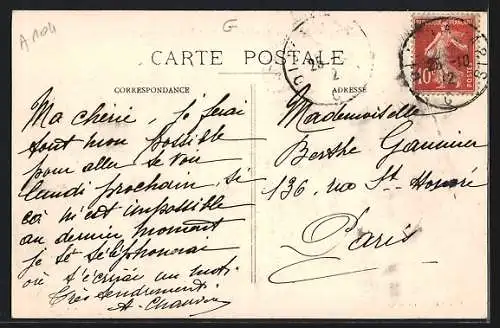 A 1104
G
CARTE POSTALE
CORRESPONDANCE
ADRESSE
Ma chérie, je ferai
tout mon possible
pour aller te voir
lundi prochain, si
ça m'est impossible
au dernier moment
je te téléphonerai
où t'écrirai un mot.
Très tendrement.
A.
Mademoiselle
Berthe
136, rue St Honoré
Paris
10
POSTES